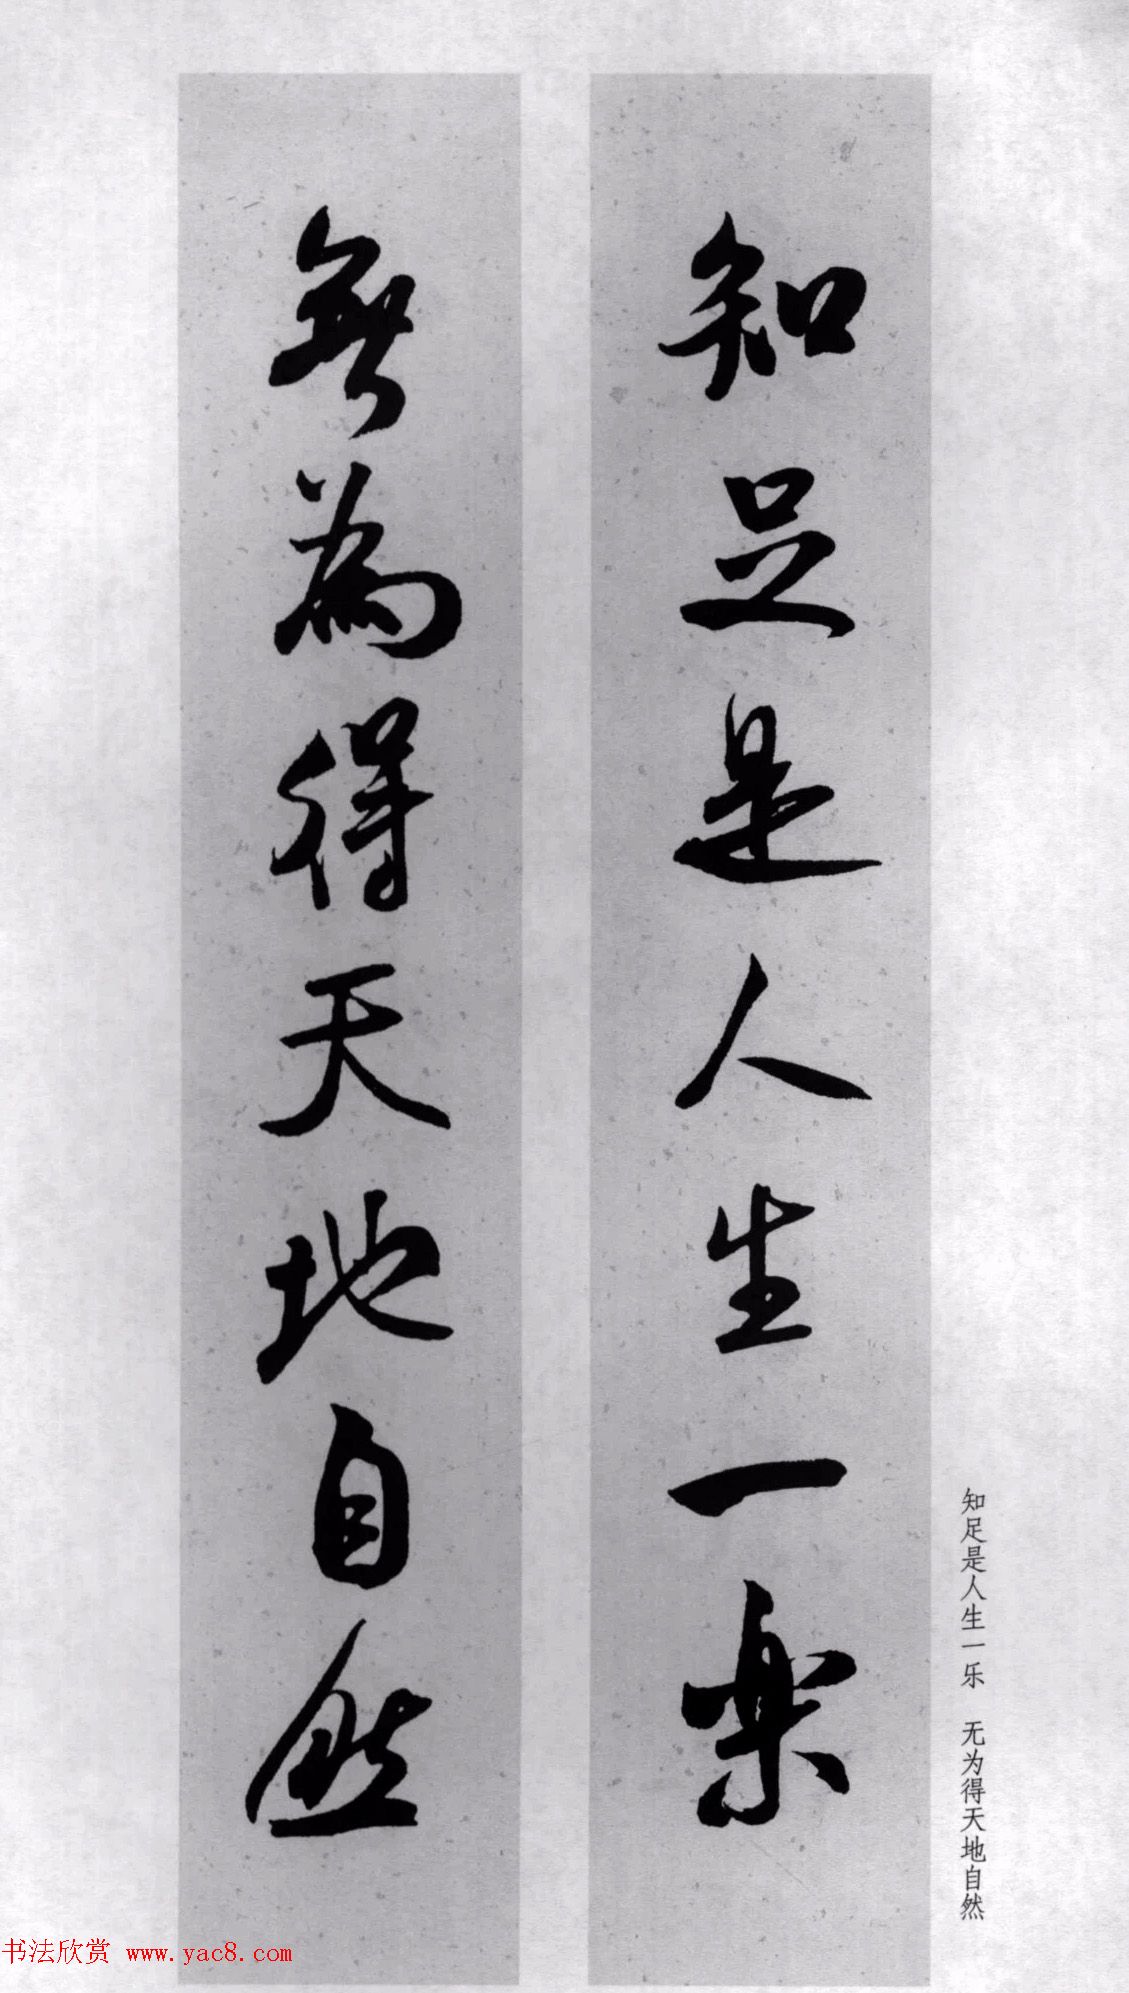 知足是人生一樂
無為得天地自然
知足是人生一乐 无为得天地自然
书法欣赏 www.yac8.com